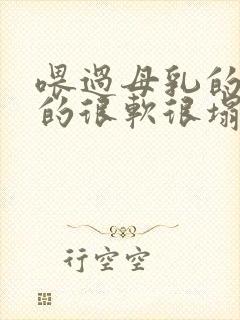 喂过母乳的
的很软很塌
行空空